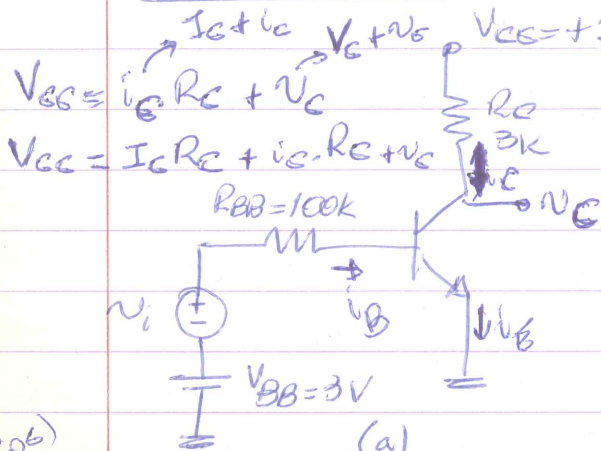 IC + ic
VC + vc
VCC = +
VCC = iC RC + vC
VCC = IC RC + ic · RC + vc
RC
3K
iC
RBB = 100K
vC
iB
vi
iE
VBB = 3V
(a)